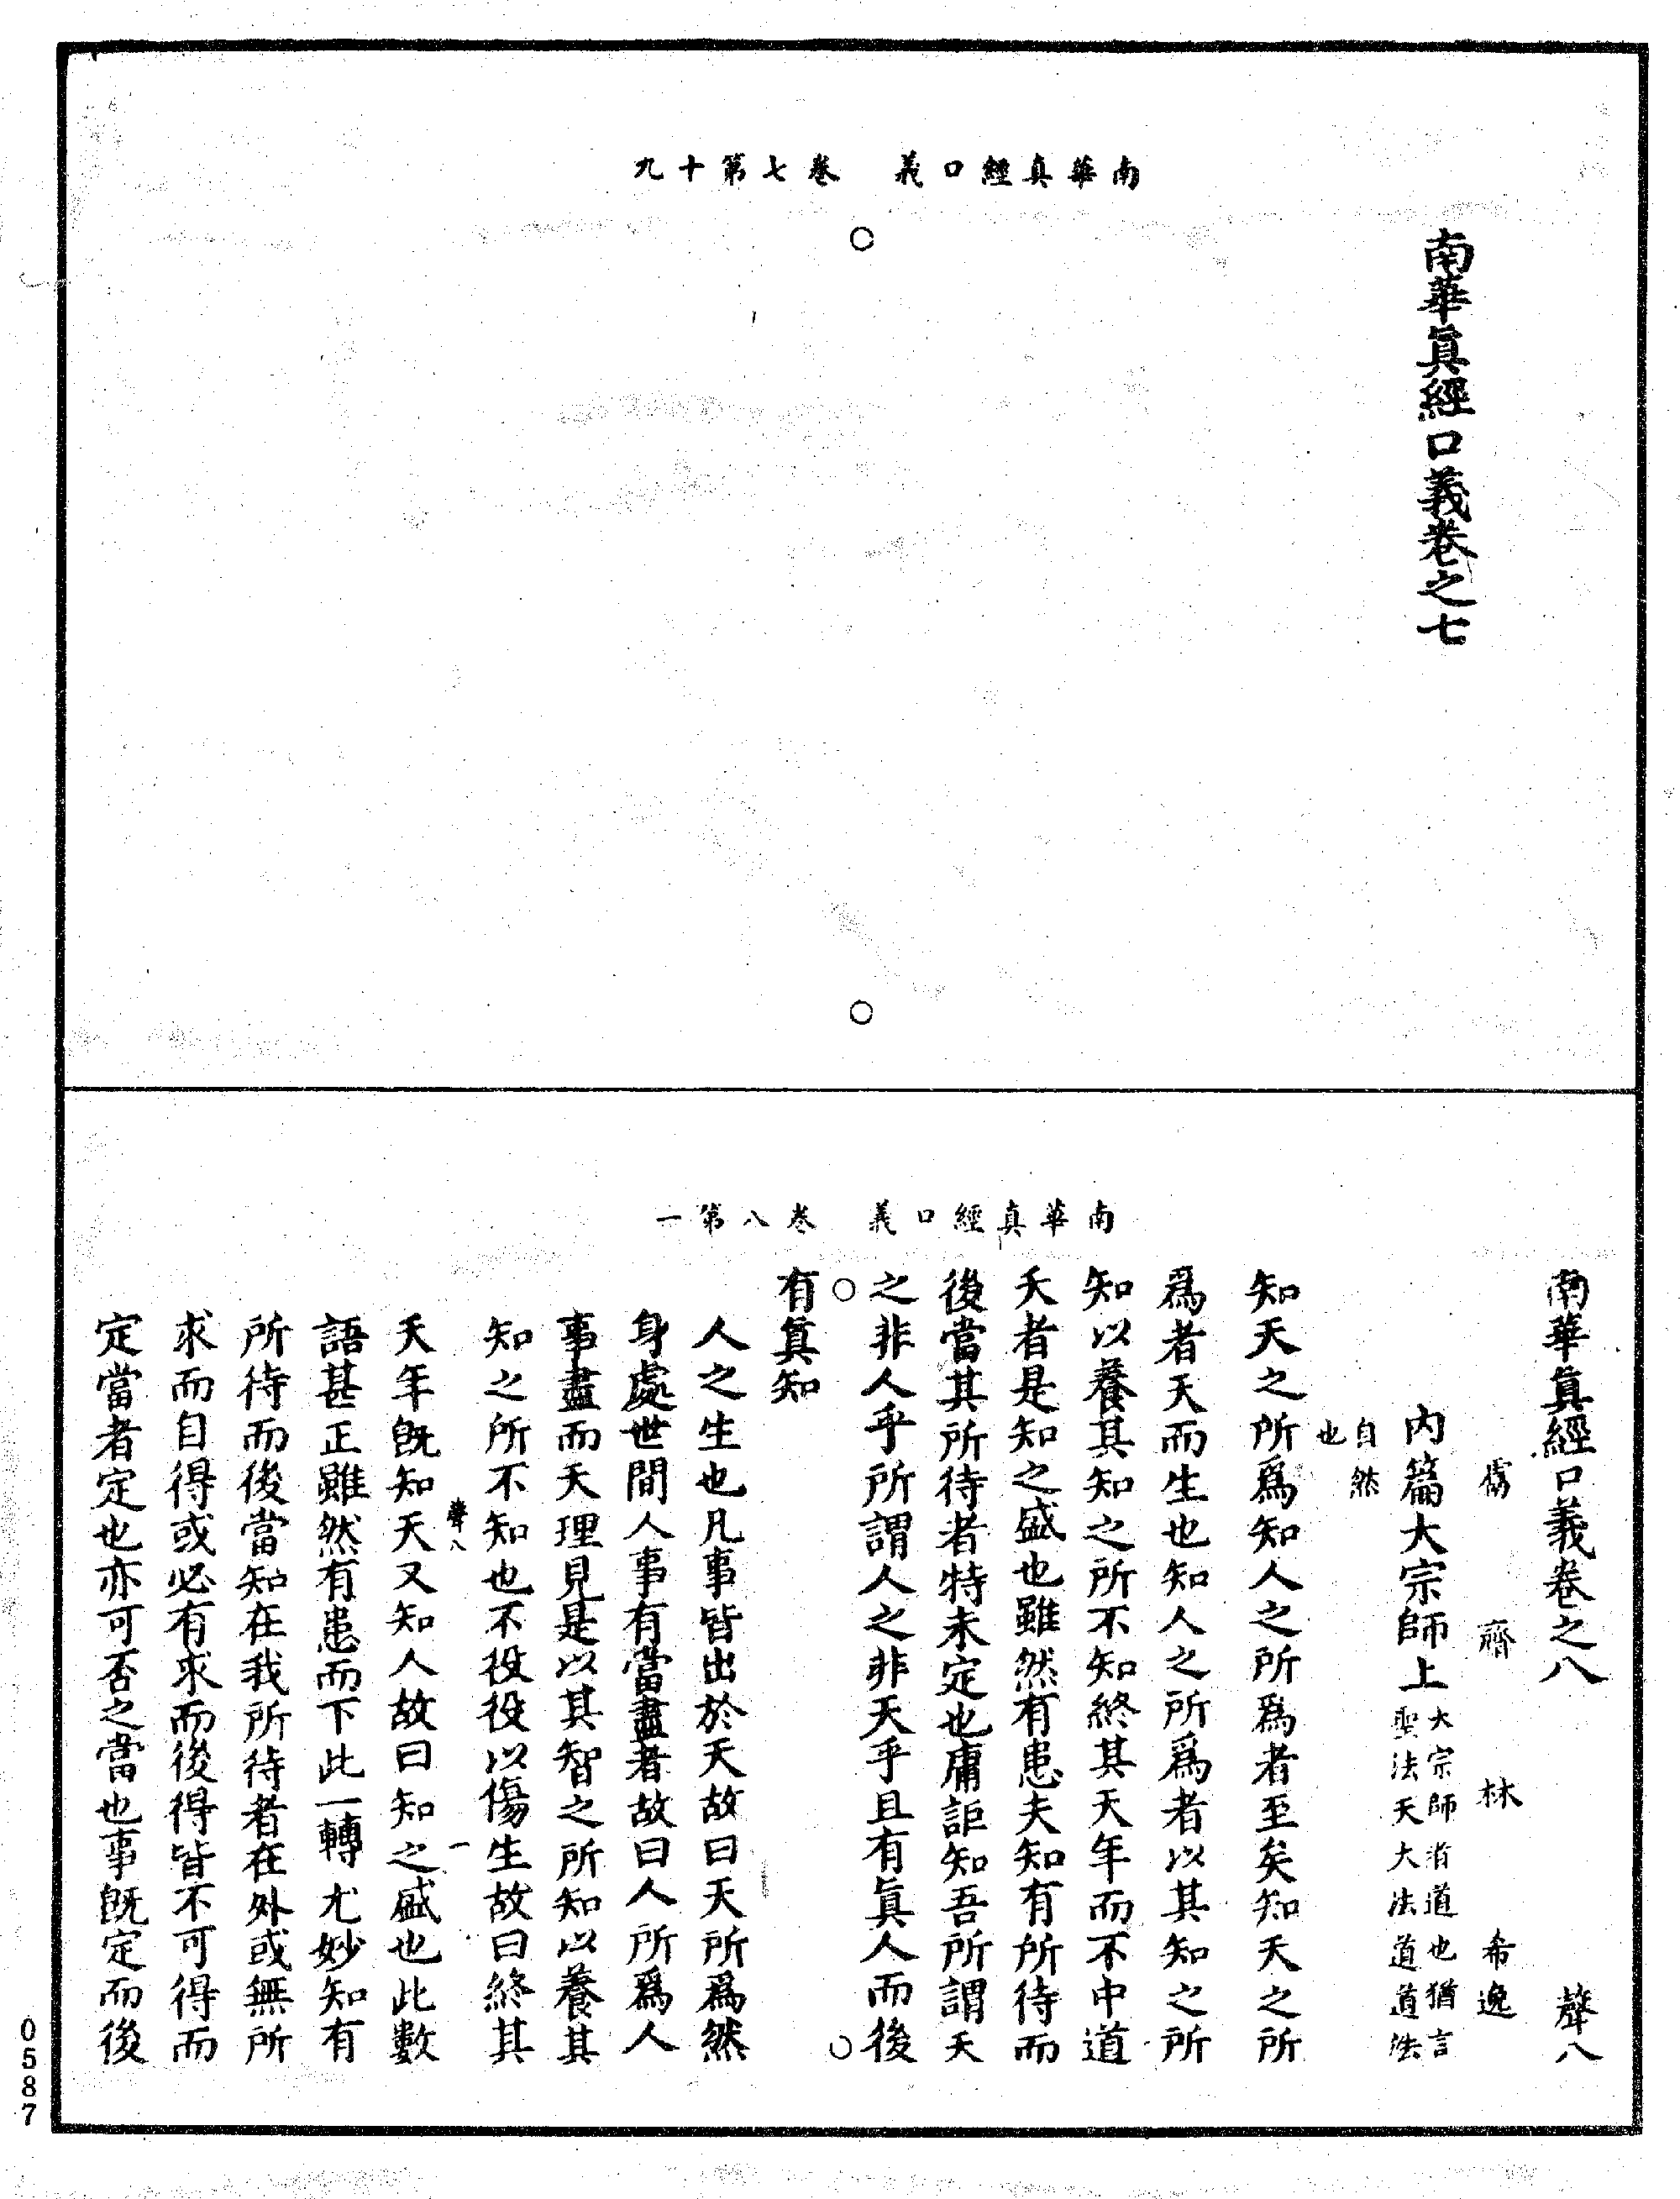 南華真經口義　卷七第十九
南華眞經口義卷之七
南華真經口義　卷八第一
南華眞經口義卷之八　聲八
鬳齋林希逸
內篇大宗師上大宗師者道也猶言
聖法天大法道道法
自然
也
知天之所爲知人之所爲者至矣知天之所
爲者天而生也知人之所爲者以其知之所
知以養其知之所不知終其天年而不中道
夭者是知之盛也雖然有患夫知有所待而
後當其所待者特未定也庸詎知吾所謂天
之非人乎所謂人之非天乎且有眞人而後
有眞知
人之生也凡事皆出於天故曰天所爲然
身處世間人事有當盡者故曰人所爲人
事盡而天理見是以其智之所知以養其
知之所不知也不役役以傷生故曰終其
聲八　一
天年旣知天又知人故曰知之盛也此數
語甚正雖然有患而下此一轉尤妙知有
所待而後當知在我所待者在外或無所
求而自得或必有求而後得皆不可得而
定當者定也亦可否之當也事旣定而後
0587